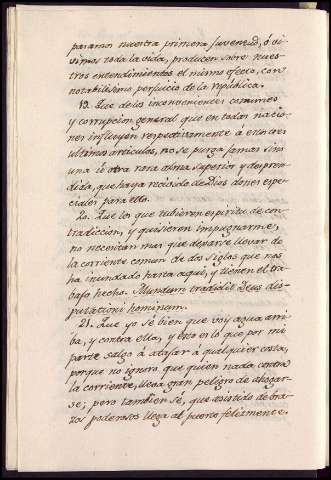 pasamos nuestra primera juventud, ó vi-
vimos toda la vida, producen sobre nues-
tros entendimientos el mismo efecto, con
notabilisimo perjuicio de la república.
19. Que de los inconvenientes comunes
y corrupcion general que en todas nacio-
nes influyen respectivamente á estos tres
ultimos articulos, no se purga jamas sino
una ú otra rara alma superior y despren-
dida, que haya recibido de Dios dones espe-
ciales para ello.
20. Que los que tubieren espiritu de con-
tradiccion, y quisieren impugnarme,
no necesitan mas que dejarse llevar de
la corriente comun de dos siglos que nos
ha inundado hasta aqui, y tienen el tra-
bajo hecho. Mundum tradidit Deus dis-
putationi hominum.
21. Que yo sé bien que voy agua arri-
ba, y contra ella, y esto es lo que por mi
parte salgo á atajar á qualquier costa,
porque no ignoro que quien nada contra
la corriente, lleva gran peligro de ahogar-
se; pero tambien sé, que asistido de bra-
zos poderosos llega al puerto felizmente.